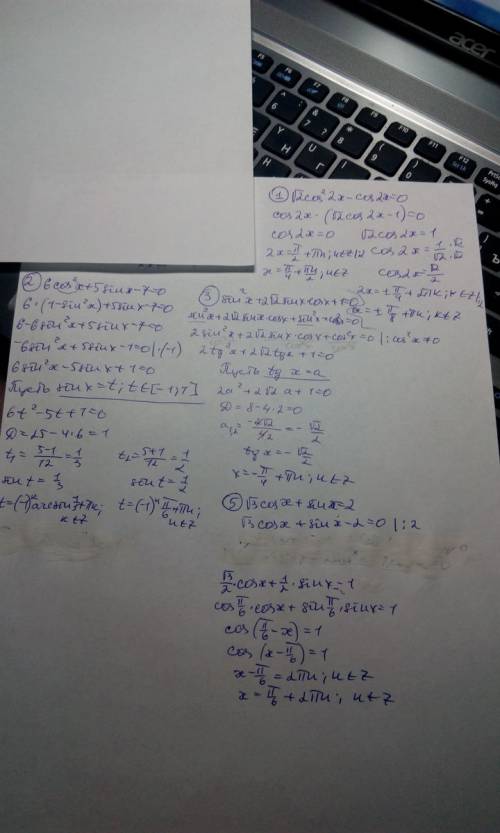 acer
① √2cos²2x-cos2x=0
cos2x·(√2cos2x-1)=0
cos2x=0 √2cos2x=1
2x=π/2+πn; n∈Z cos2x=1·√2/√2·√2
x=π/4+πn/2; n∈Z cos2x=√2/2
2x=±π/4+2πk; k∈Z |:2
x=±π/8+πk; k∈Z
② 6cos²x+5sinx-7=0
6·(1-sin²x)+5sinx-7=0
6-6sin²x+5sinx-7=0
-6sin²x+5sinx-1=0 |·(-1)
6sin²x-5sinx+1=0
Пусть sinx=t; t∈[-1;1]
6t²-5t+1=0
D=25-4·6=1
t₁=5-1/12=1/3 t₂=5+1/12=1/2
sin t=1/3 sin t=1/2
t=(-1)ᵏarcsin1/3+πk; k∈Z t=(-1)ⁿπ/6+πn; n∈Z
③ sin²x+2√2sinxcosx+1=0
sin²x+2√2sinx·cosx+sin²x+cos²x=0
2sin²x+2√2sinx·cosx+cos²x=0 |:cos²x≠0
2tg²x+2√2tgx+1=0
Пусть tgx=a
2a²+2√2a+1=0
D=8-4·2=0
a₁,₂=-2√2/4=-√2/2
tgx=-√2/2
x=-π/4+πn; n∈Z
⑤ √3cosx+sinx=2
√3cosx+sinx-2=0 |:2
√3/2·cosx+1/2·sinx=1
cosπ/6·cosx+sinπ/6·sinx=1
cos(π/6-x)=1
cos(x-π/6)=1
x-π/6=2πn; n∈Z
x=π/6+2πn; n∈Z